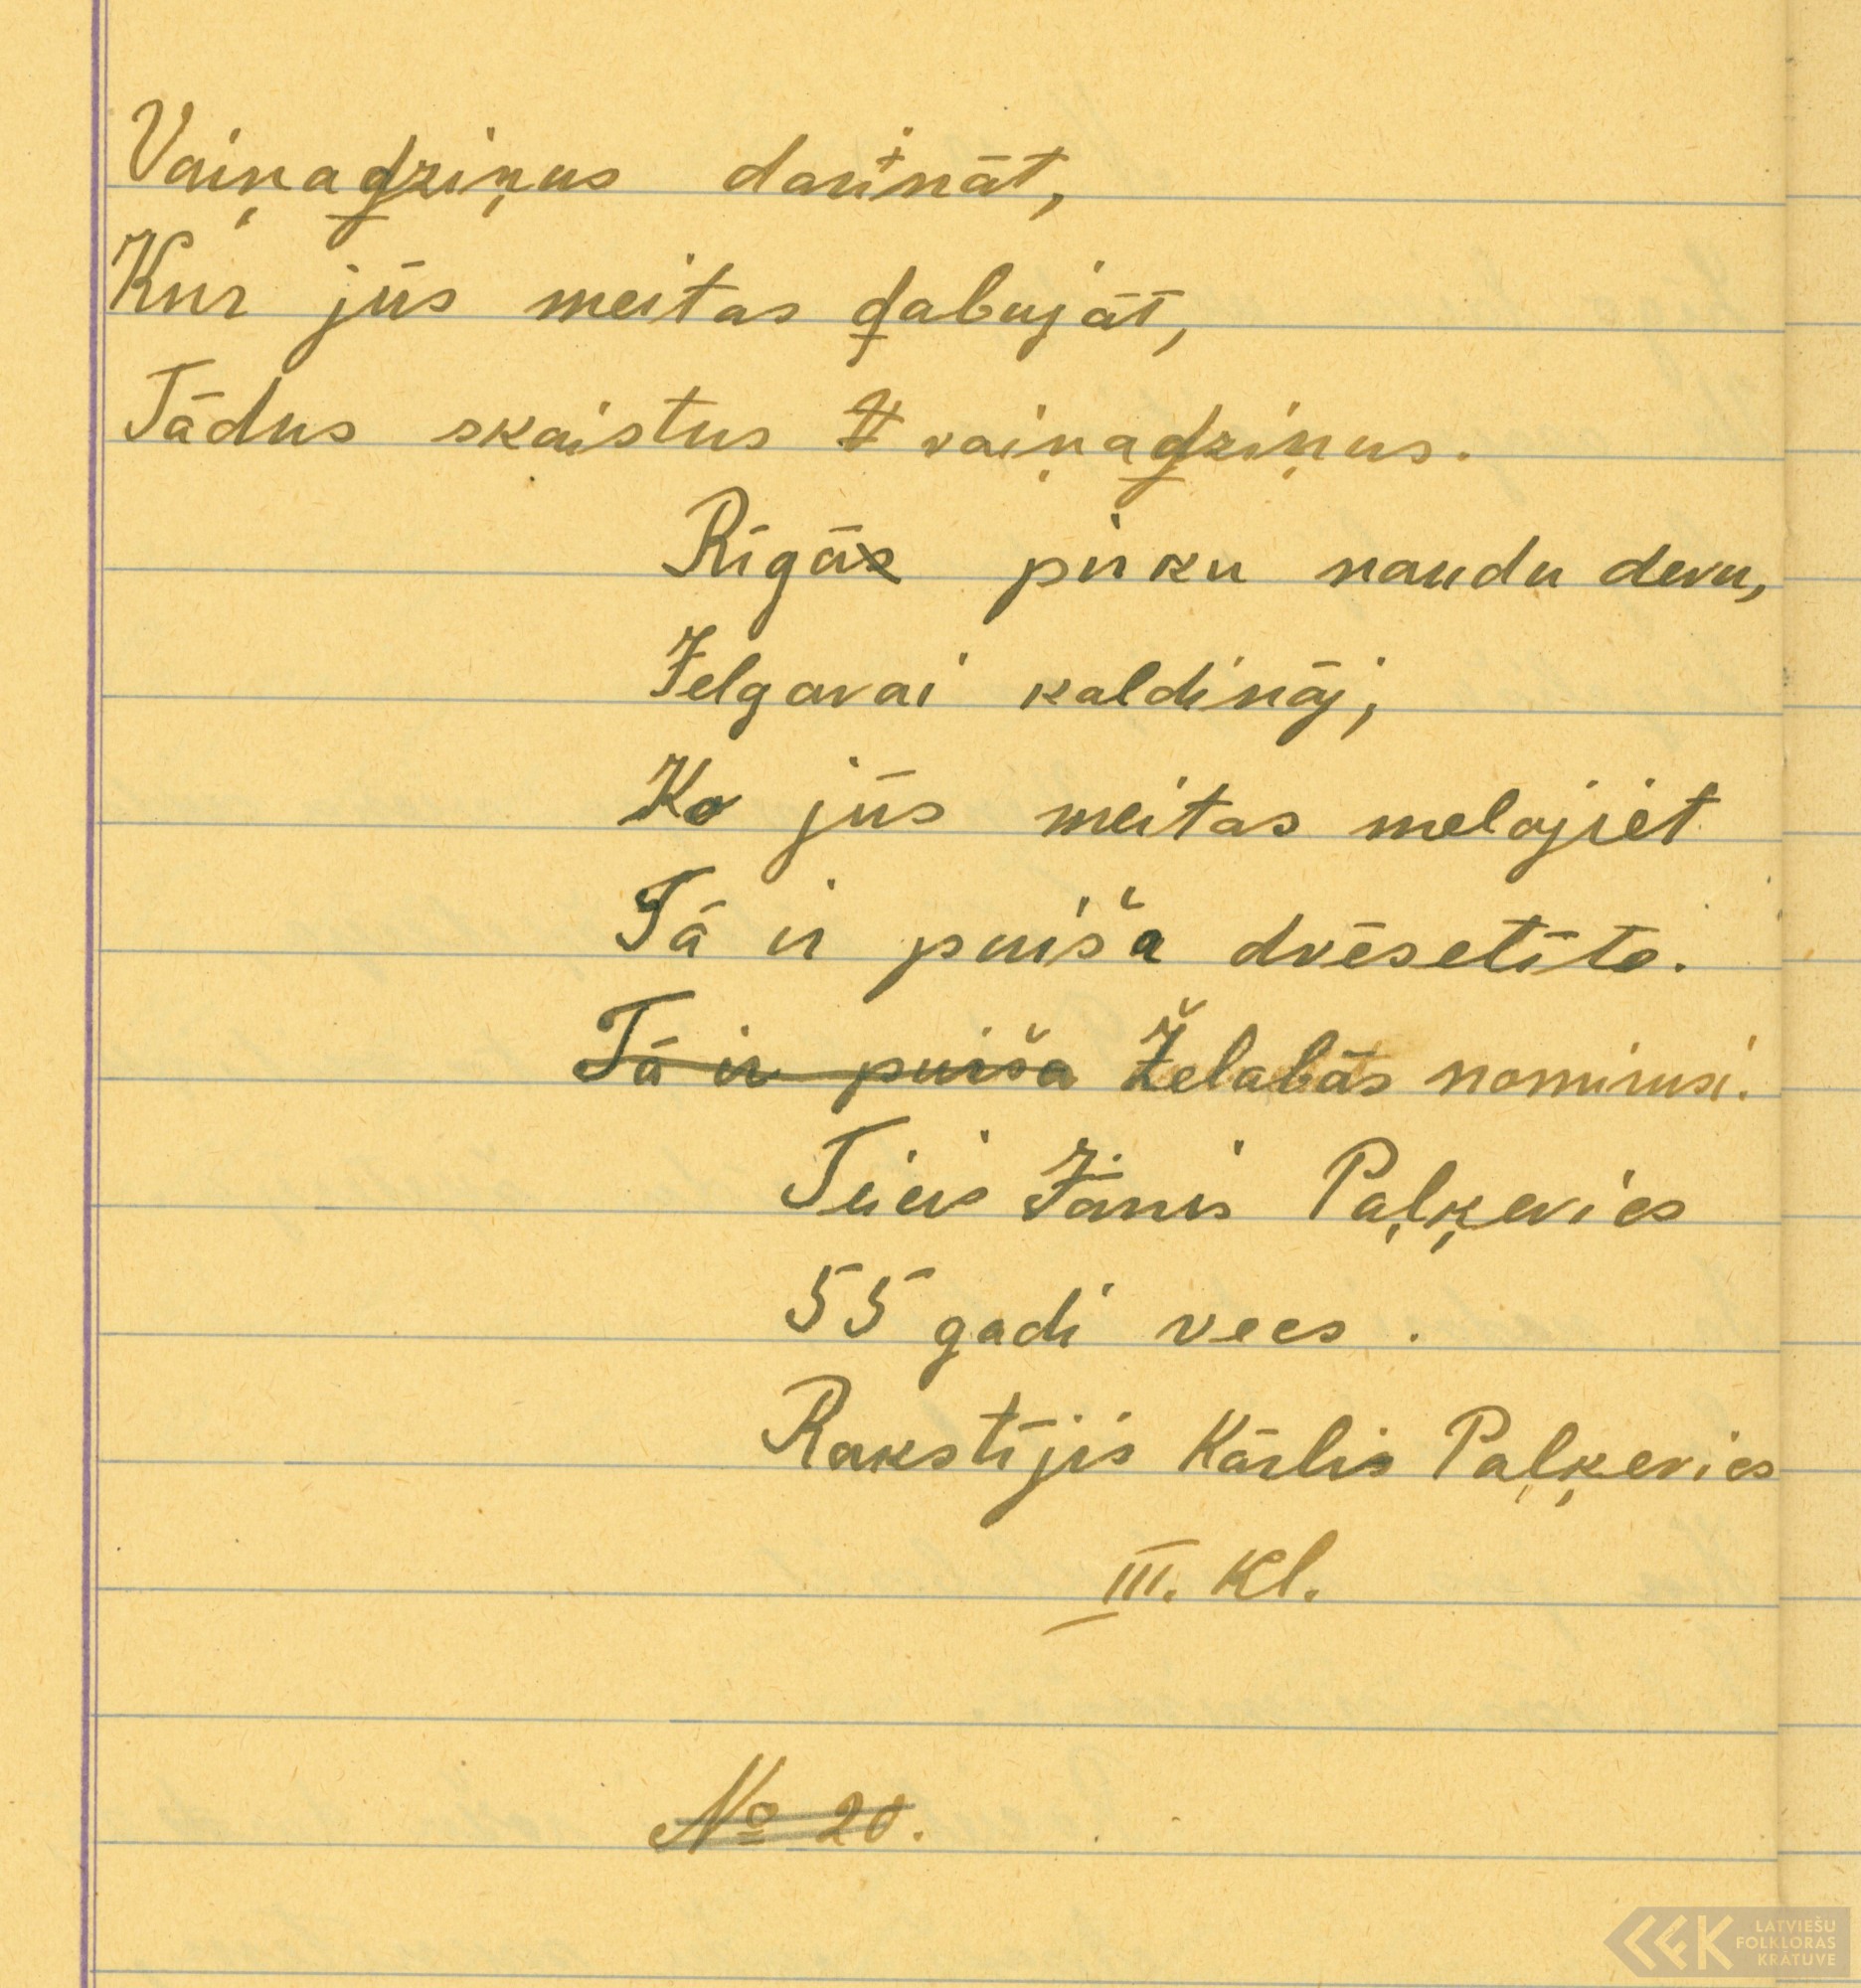 Vaiņadziņus darināt,
Kur jūs meitas dabujāt,
Tādus skaistus vaiņadziņus.
Rīgā pirku naudu devu,
Jelgavai kaldināj,
Ko jūs meitas melojiet
Tā ir puiša dvēselīte.
Tā ir puiša Želabās nomirusi.
Teicis Jānis Paļķevics
55 gadi vecs.
Rakstījis Kārlis Paļķevics
III. Kl.
№ 20.
LATVIEŠU
FOLKLORAS
KRĀTUVE